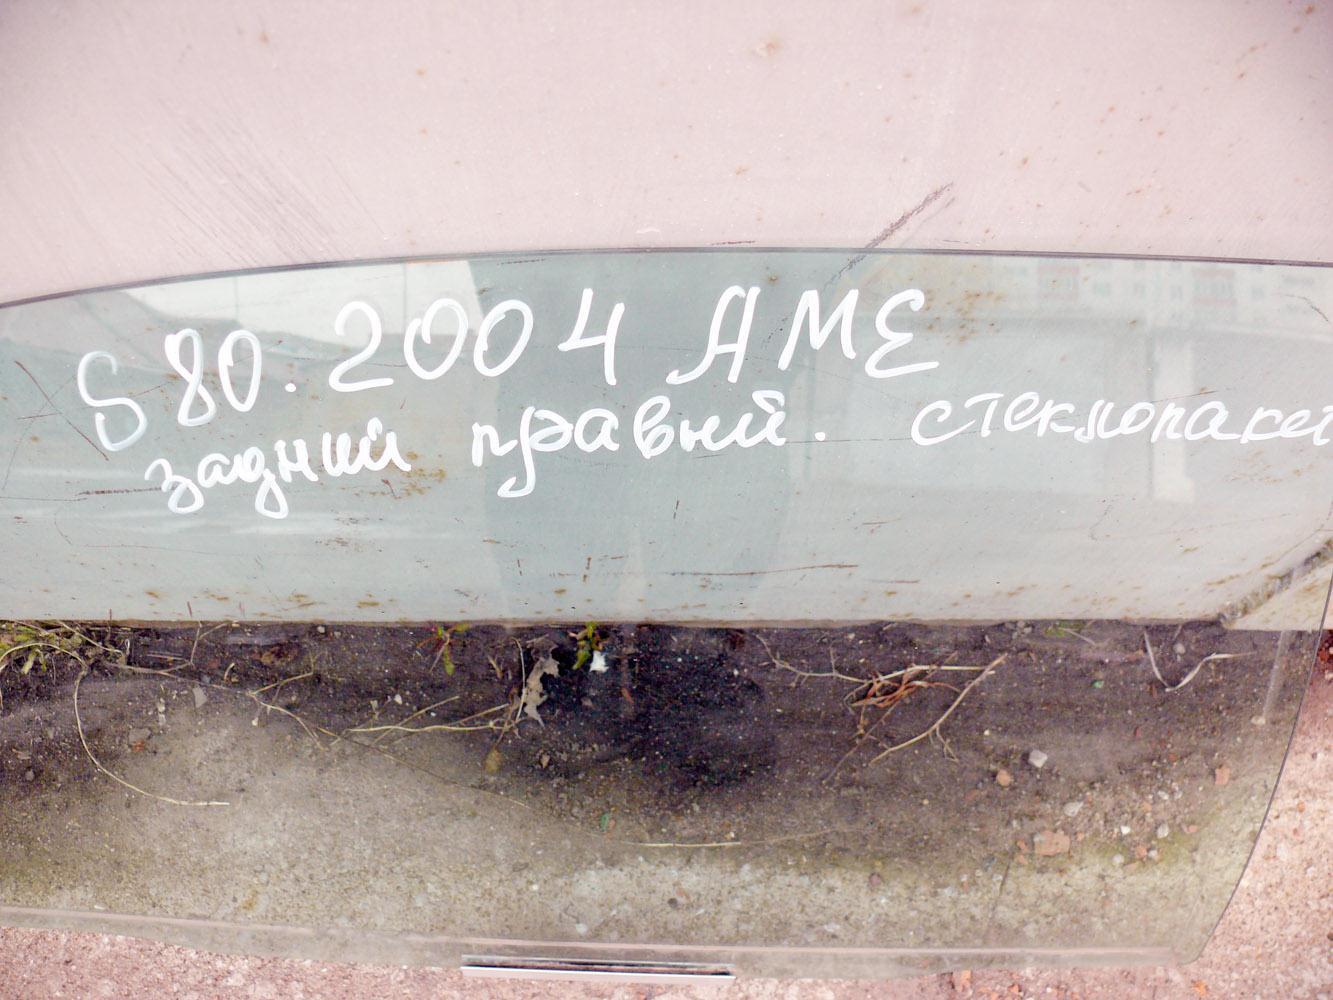 S80. 2004 АМЕ
задний правый. стеклопакет